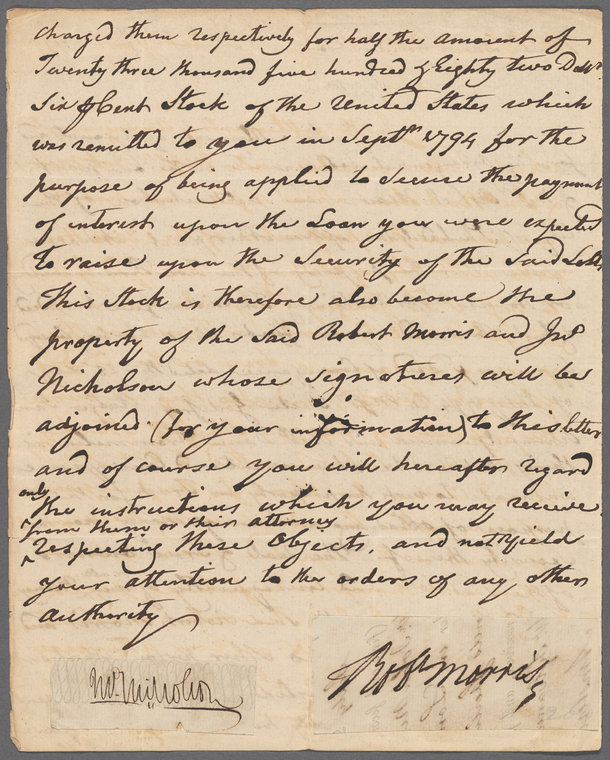 charged them respectively for half the amount of
Twenty three thousand five hundred & Eighty two Dollrs
Six ⅌ Cent Stock of the United States which
was remitted to you in Septr 1794 for the
purpose of being applied to secure the payment
of interest upon the Loan you were expected
to raise upon the Security of the Said Lotts
This Stock is therefore also become the
property of the Said Robert Morris and Jno
Nicholson whose signatures will be
adjoined (for your information) to this letter
and of course you will hereafter regard
only
the instructions which you may receive
from them or their attorney
respecting these Objects, and not yield
your attention to the orders of any other
authority
Jno. Nicholson
Robt Morris